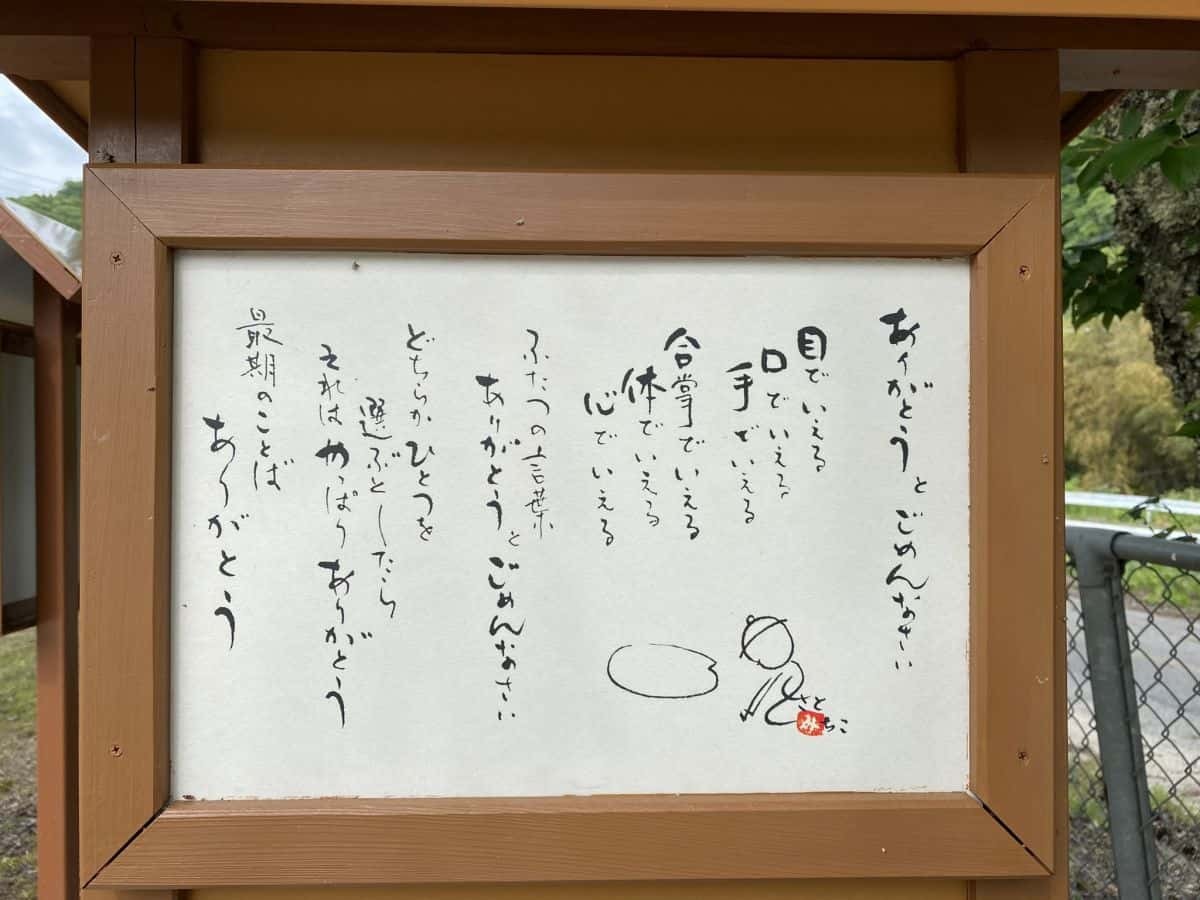 ありがとうとごめんなさい
目でいえる
口でいえる
手でいえる
合掌でいえる
体でいえる
心でいえる
ふたつの言葉
ありがとうとごめんなさい
どちらかひとつを
選ぶとしたら
それはやっぱりありがとう
最期のことば
ありがとう
さと
みちこ